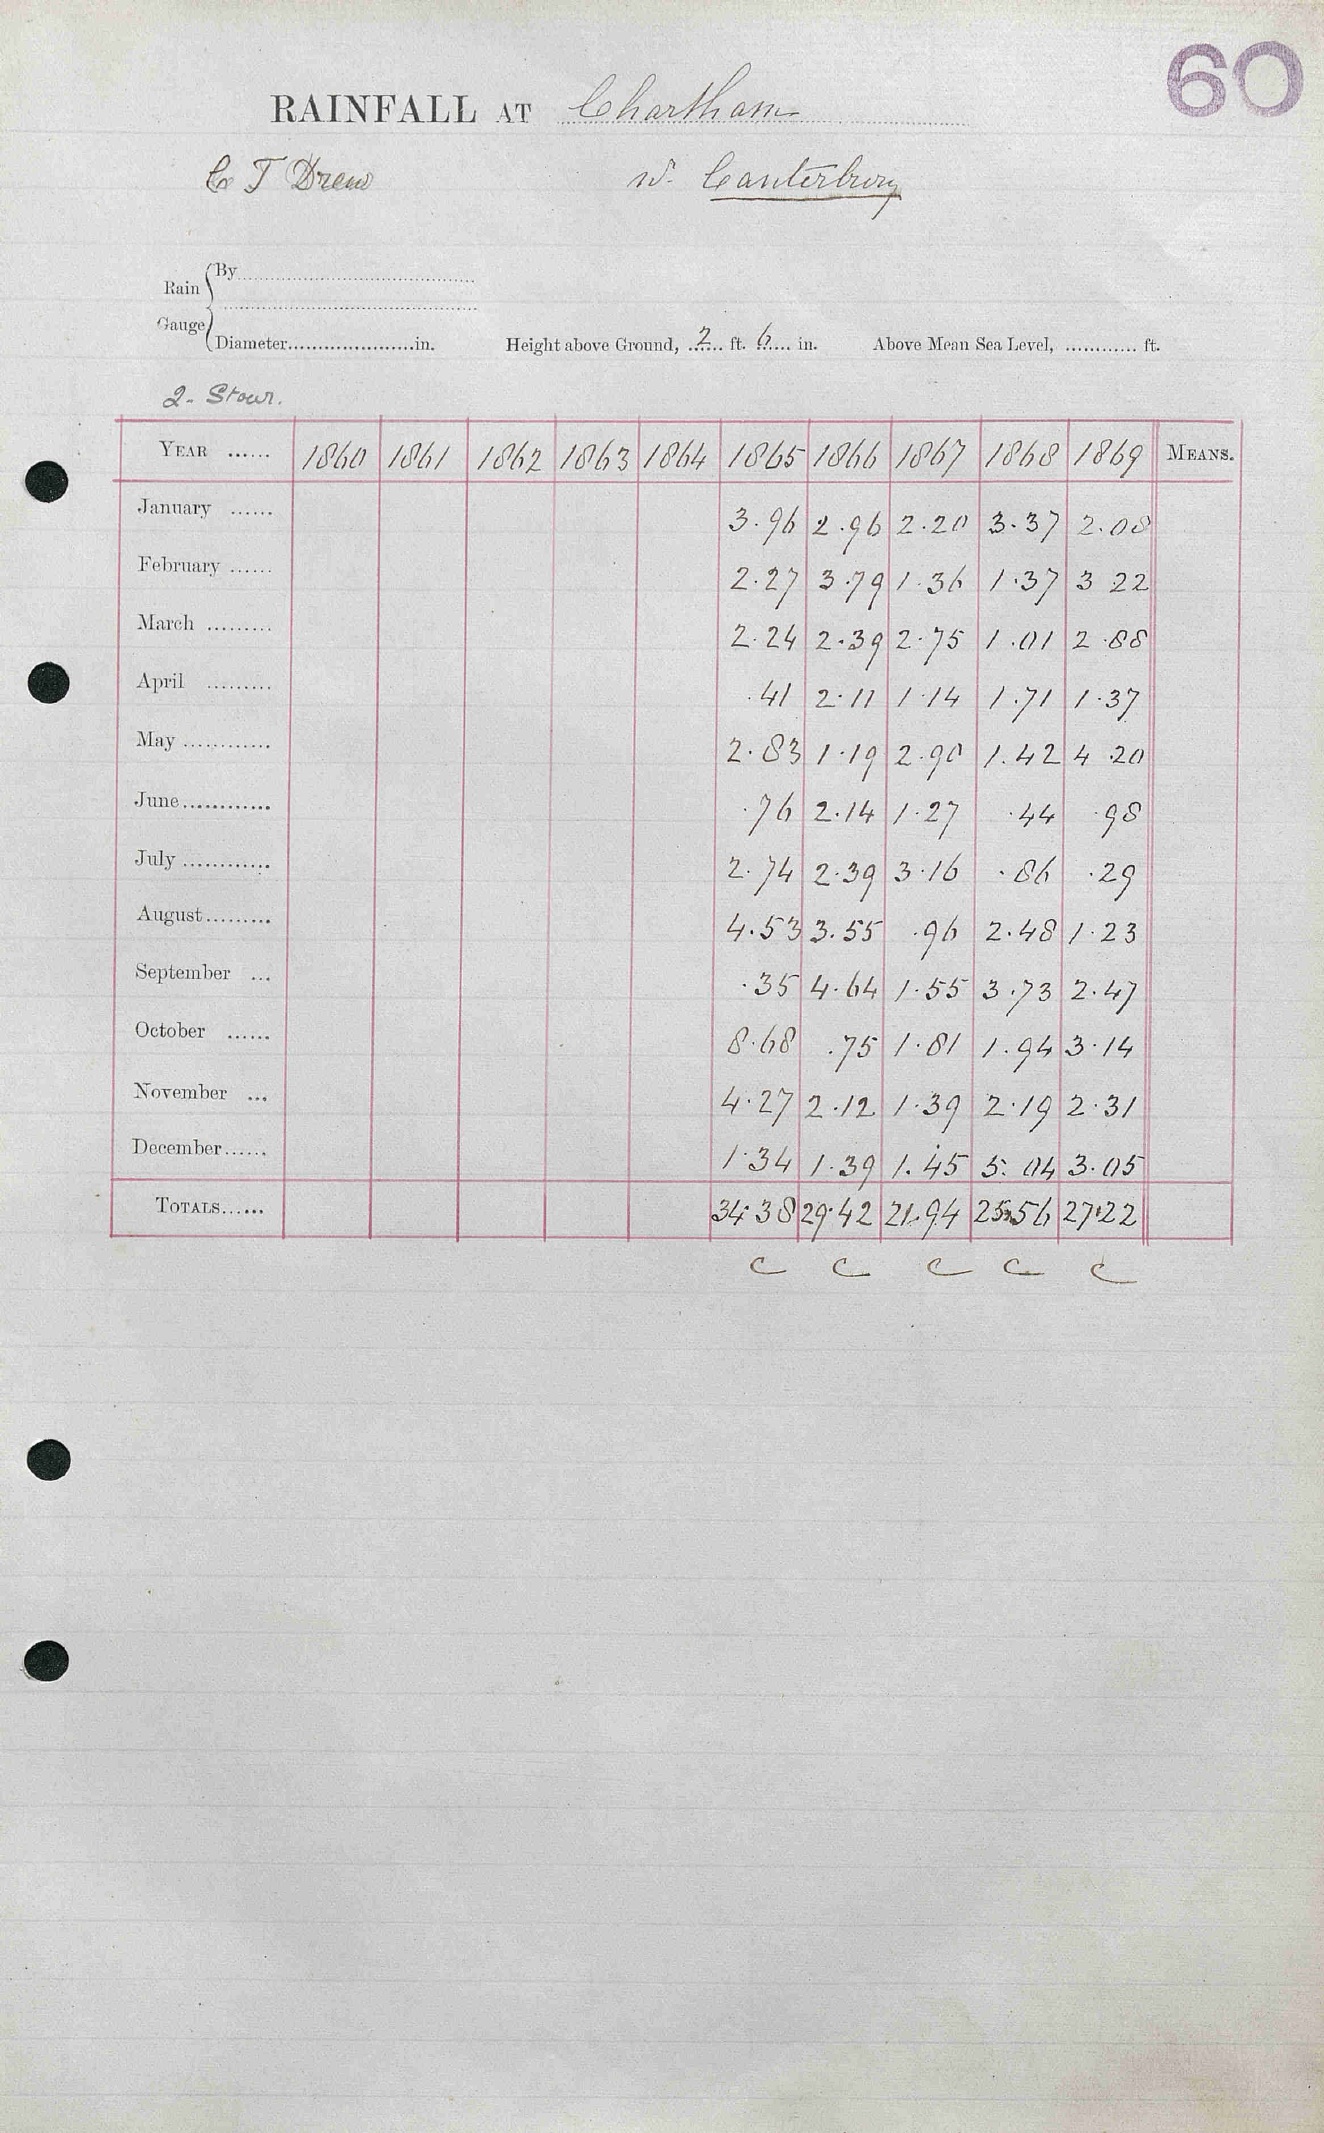 60
RAINFALL AT Chartham
C T Drew nr. Canterbury
Rain Gauge
By
Diameter in. Height above Ground, 2 ft. 6 in. Above Mean Sea Level, ft.
2. Stour.
YEAR 1860 1861 1862 1863 1864 1865 1866 1867 1868 1869 MEANS.
January 3.96 2.96 2.20 3.37 2.08
February 2.27 3.79 1.36 1.37 3 22
March 2.24 2.39 2.75 1.01 2.88
April .41 2.11 1.14 1.71 1.37
May 2.83 1.19 2.90 1.42 4.20
June .76 2.14 1.27 .44 .98
July 2.74 2.39 3.16 .86 .29
August 4.53 3.55 .96 2.48 1.23
September .35 4.64 1.55 3.73 2.47
October 8.68 .75 1.81 1.94 3.14
November 4.27 2.12 1.39 2.19 2.31
December 1.34 1.39 1.45 5.04 3.05
TOTALS 34.38 29.42 21.94 25.56 27.22
C C C C C